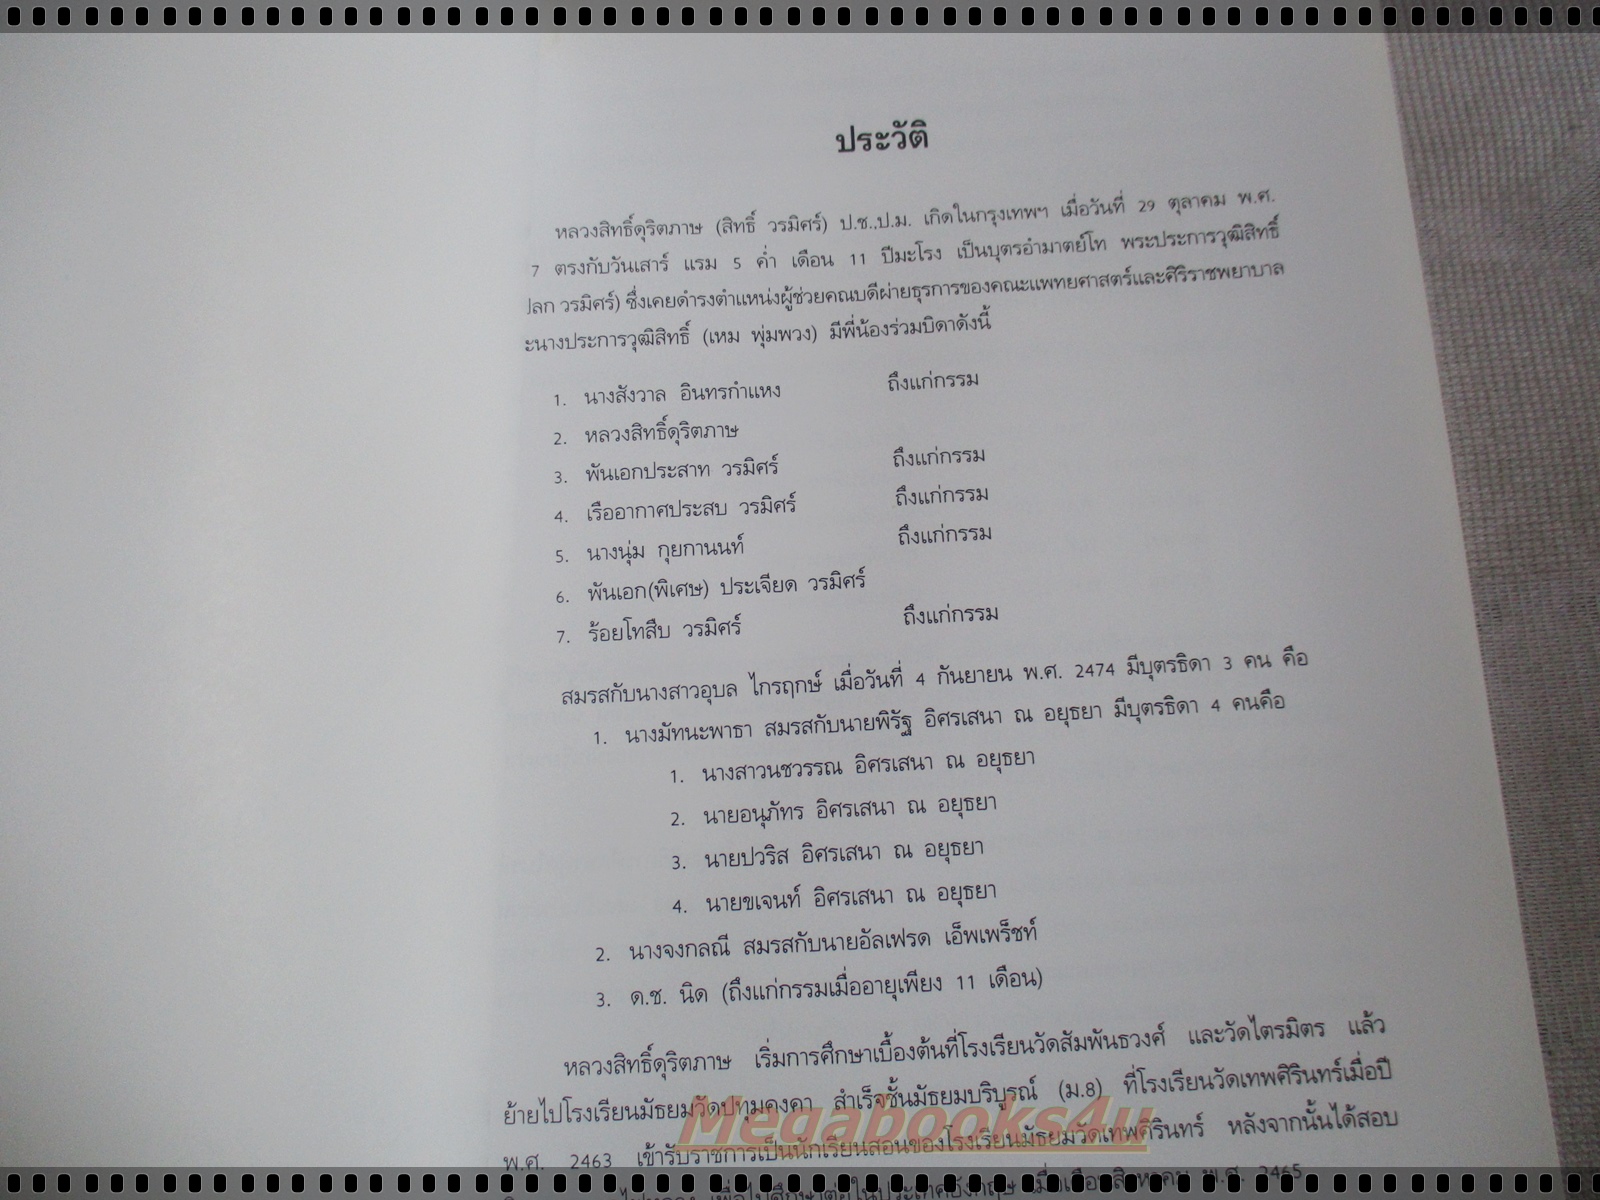 ประวัติ
หลวงสิทธิ์ดุริตภาษ (สิทธิ์ วรมิศร์) ป.ช.,ป.ม. เกิดในกรุงเทพฯ เมื่อวันที่ 29 ตุลาคม พ.ศ.
7 ตรงกับวันเสาร์ แรม 5 ค่ำ เดือน 11 ปีมะโรง เป็นบุตรอำมาตย์โท พระประการวุฒิสิทธิ์
วรมิศร์) ซึ่งเคยดำรงตำแหน่งผู้ช่วยคณบดีฝ่ายธุรการของคณะแพทยศาสตร์และศิริราชพยาบาล
ะนางประการวุฒิสิทธิ์ (เหม พุ่มพวง) มีพี่น้องร่วมบิดาดังนี้
1. นางสังวาล อินทรกำแหง ถึงแก่กรรม
2. หลวงสิทธิ์ดุริตภาษ
3. พันเอกประสาท วรมิศร์ ถึงแก่กรรม
4. เรืออากาศประสบ วรมิศร์ ถึงแก่กรรม
5. นางนุ่ม กุยกานนท์ ถึงแก่กรรม
6. พันเอก(พิเศษ) ประเจียด วรมิศร์
7. ร้อยโทสืบ วรมิศร์ ถึงแก่กรรม
สมรสกับนางสาวอุบล ไกรฤกษ์ เมื่อวันที่ 4 กันยายน พ.ศ. 2474 มีบุตรธิดา 3 คน คือ
1. นางมัทนะพาธา สมรสกับนายพิรัฐ อิศรเสนา ณ อยุธยา มีบุตรธิดา 4 คนคือ
1. นางสาวนชวรรณ อิศรเสนา ณ อยุธยา
2. นายอนุภัทร อิศรเสนา ณ อยุธยา
3. นายปวริส อิศรเสนา ณ อยุธยา
4. นายขเจนท์ อิศรเสนา ณ อยุธยา
2. นางจงกลณี สมรสกับนายอัลเฟรด เอ็พเพร็ชท์
3. ด.ช. นิด (ถึงแก่กรรมเมื่ออายุเพียง 11 เดือน)
หลวงสิทธิ์ดุริตภาษ เริ่มการศึกษาเบื้องต้นที่โรงเรียนวัดสัมพันธวงศ์ และวัดไตรมิตร แล้ว
ย้ายไปโรงเรียนมัธยมวัดปทุมคงคา สำเร็จชั้นมัธยมบริบูรณ์ (ม.8) ที่โรงเรียนวัดเทพศิรินทร์เมื่อปี
พ.ศ. 2463 เข้ารับราชการเป็นนักเรียนสอนของโรงเรียนมัธยมวัดเทพศิรินทร์ หลังจากนั้นได้สอบ
เพื่อไปศึกษาต่อในประเทศอังกฤษ เมื่อเดือนสิงหาคม พ.ศ. 2465
Megabooks4u